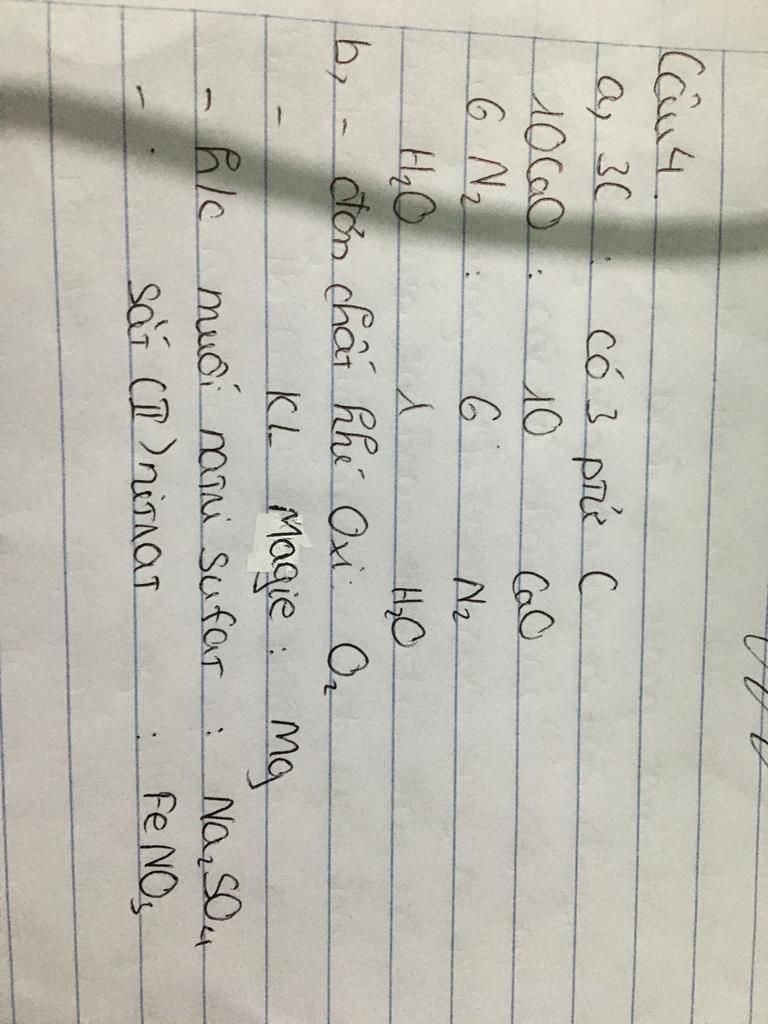 Câu 4
a, 3C : có 3 ptử C
10CaO : 10 CaO
6 N₂ : 6 N₂
H₂O 1 H₂O
b, - đơn chất khí Oxi : O₂
- KL Magie : Mg
- h/c muối natri sufat : Na₂SO₄
- sắt (II) nitrat : FeNO₃